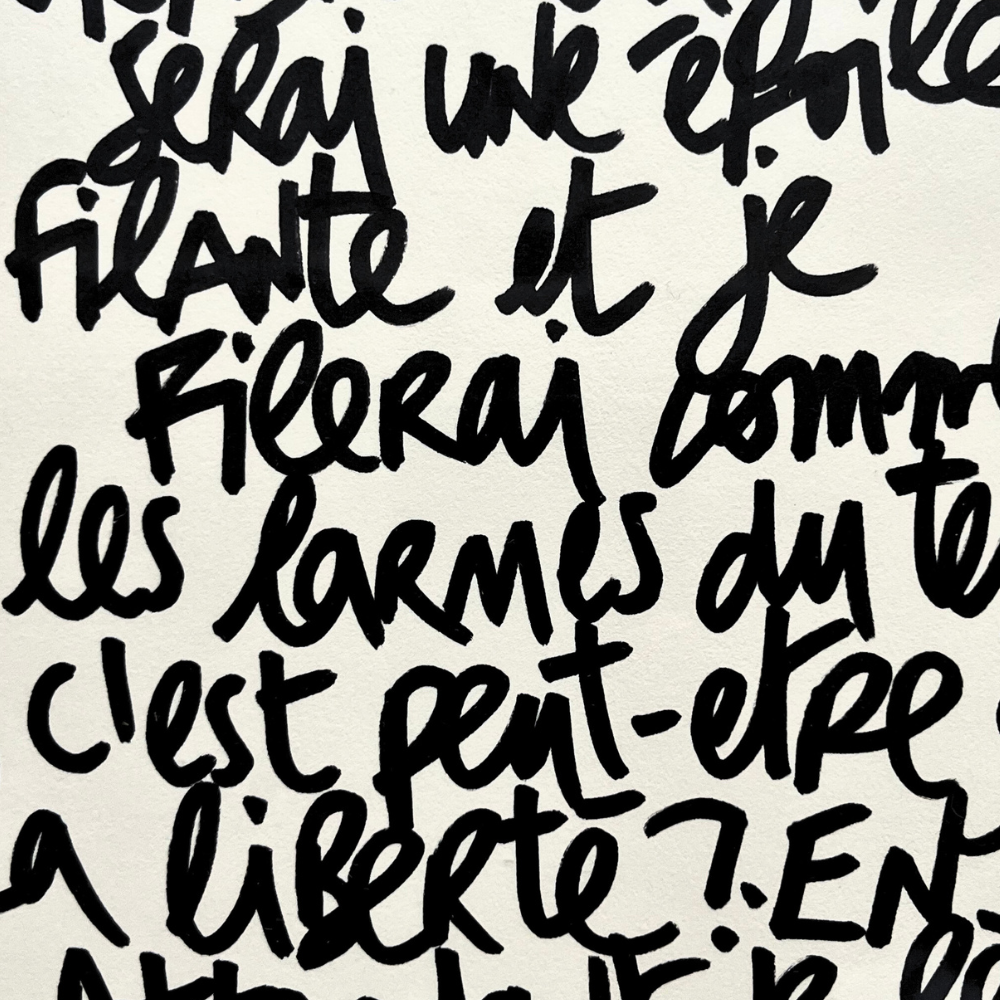 serai une étoile
filante et je
filerai comme
les larmes du te
c'est peut-etre
a liberte ? . EN